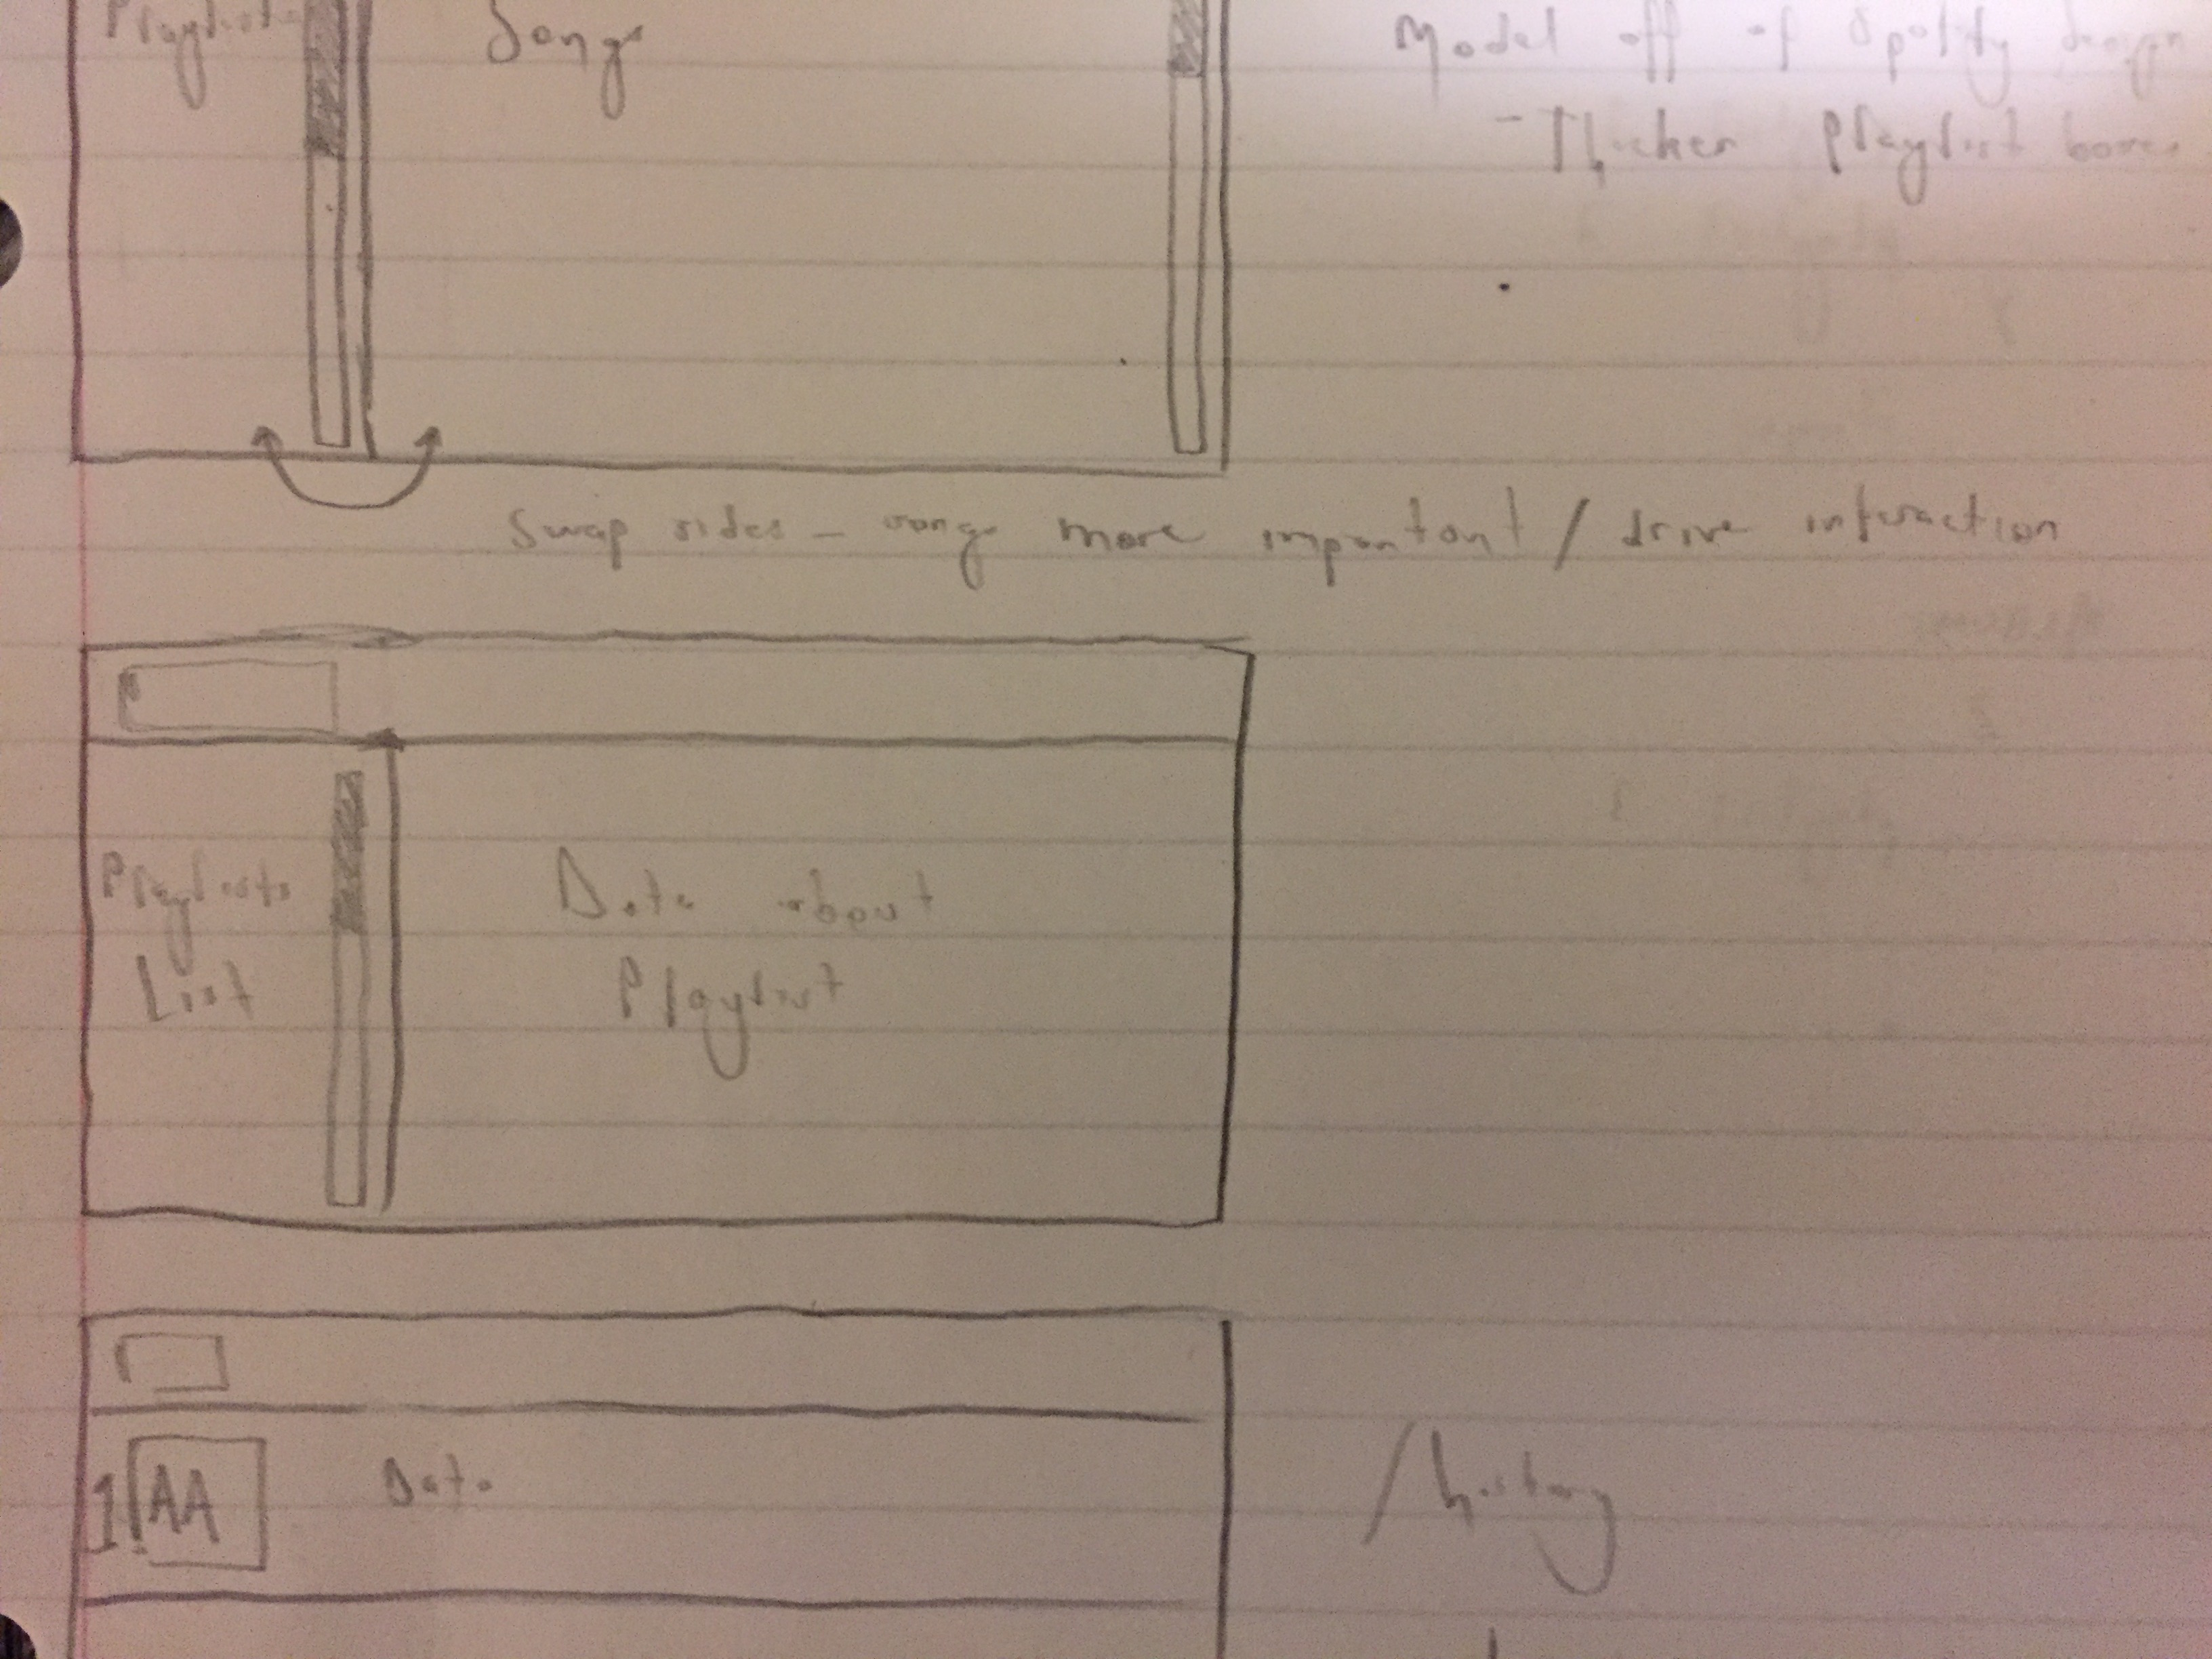 Playlists Songs Model off of Spotify design
- Thicker Playlist boxes
Swap sides - songs more important / drive interaction
Playlists
List
Data about
Playlist
1. AA Data /history